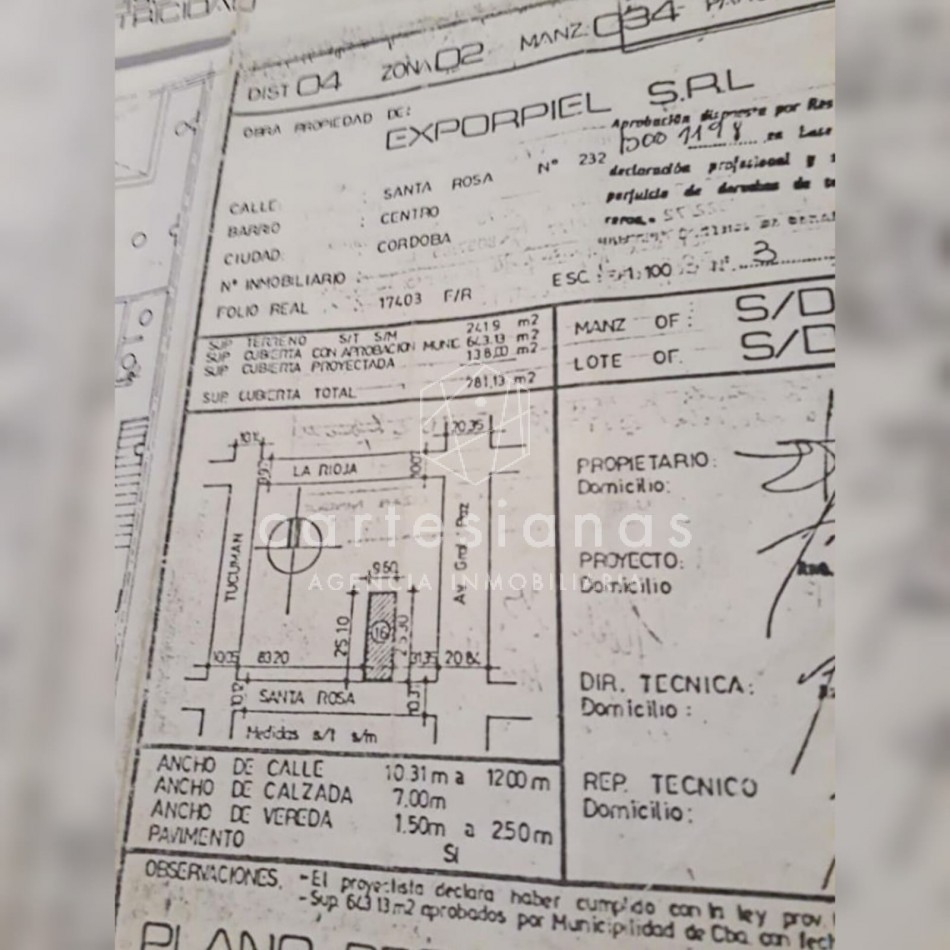 TRICIDAD
DIST 04 ZONA 02 MANZ: 034
OBRA PROPIEDAD DE:
EXPORPIEL S.R.L
Aprobación dispuesta por Res
declaración profesional y
perjuicio de derechos de
CALLE: SANTA ROSA Nº 232
BARRIO CENTRO
CIUDAD: CORDOBA
Nº INMOBILIARIO :
FOLIO REAL : 17403 F/R
ESC 1:100 Nº 3
SUP TERRENO S/T S/M 241.9 m2
SUP CUBIERTA CON APROBACION MUNIC 643.13 m2
SUP CUBIERTA PROYECTADA 138,00 m2
SUP CUBIERTA TOTAL 281,13 m2
MANZ OF: S/D
LOTE OF. S/D
20,35
LA RIOJA
TUCUMAN
Av. Gral. Paz
cartesianas
AGENCIA INMOBILIARIA
9.60
25.10
16
10.05 83.20 31,35 20.84
10.12
10.31
SANTA ROSA
Medidas s/t s/m
PROPIETARIO:
Domicilio:
PROYECTO:
Domicilio
DIR. TECNICA:
Domicilio :
REP. TECNICO
Domicilio:
ANCHO DE CALLE 10.31 m a 12.00 m
ANCHO DE CALZADA 7,00m
ANCHO DE VEREDA 1.50m a 2.50m
PAVIMENTO SI
OBSERVACIONES. -El proyectista declara haber cumplido con la ley prov.
-Sup. 643.13 m2 aprobados por Municipilidad de Cba. con fech
PLANO